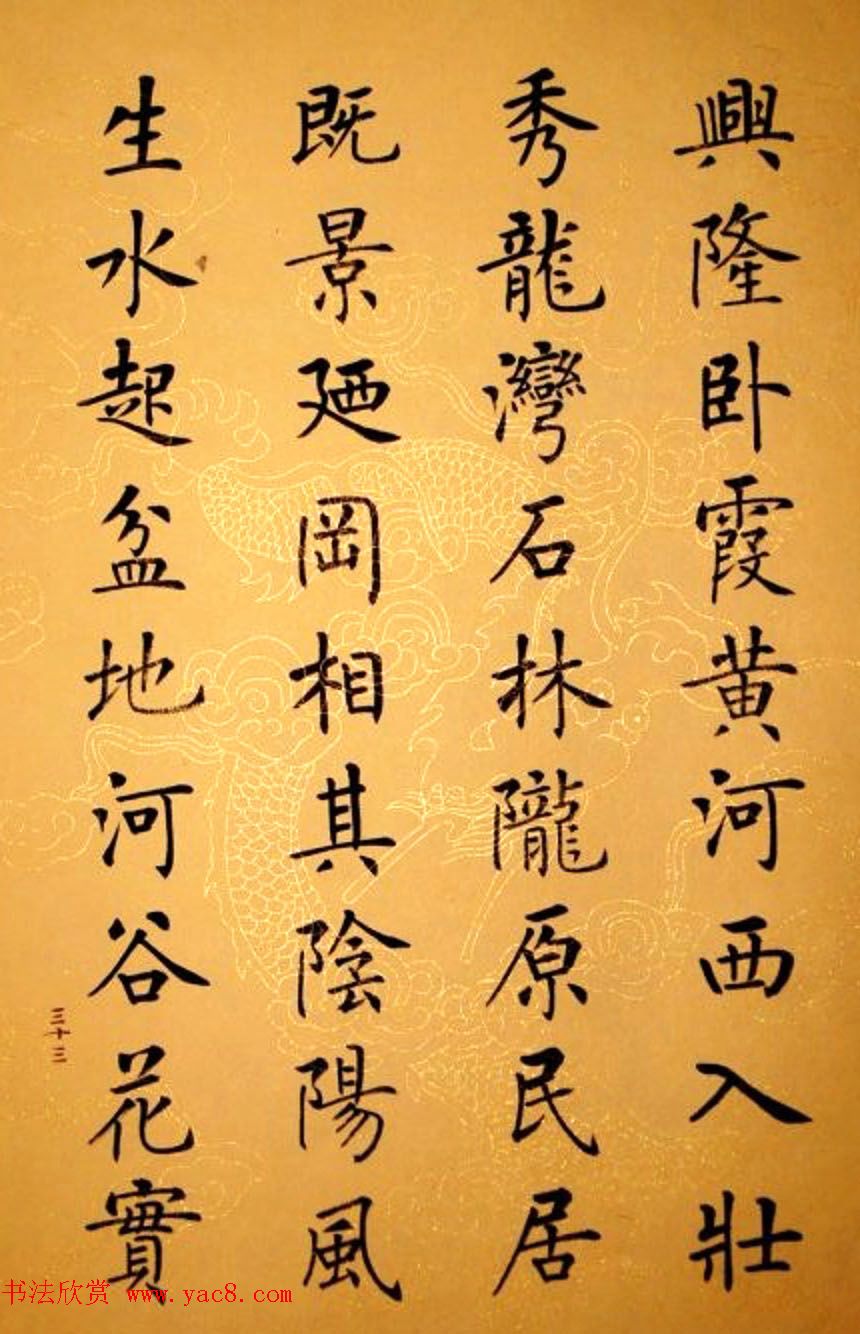 興隆卧霞黄河西入壯
秀龍灣石林隴原民居
既景廼岡相其陰陽風
生水起盆地河谷花實
三十三
书法欣赏 www.yac8.com